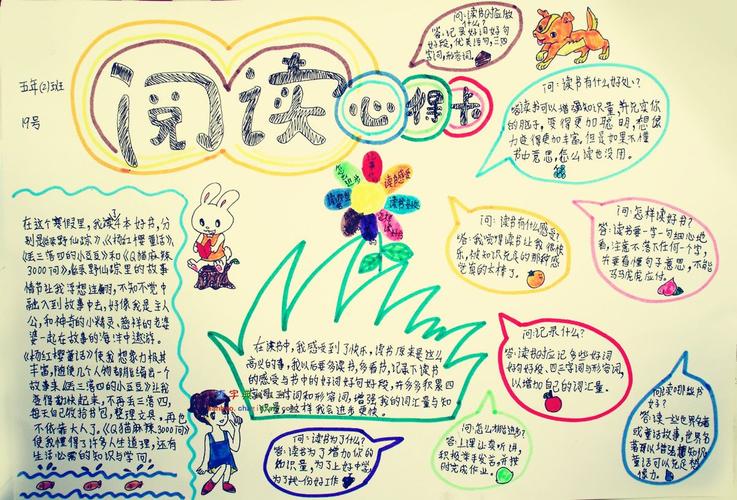 五年(2)班
19号
阅读
心得卡
问:读书时应做
什么?
答:记录好词好句
好段,优美语句,三四
字词,形容词。
问:读书有什么好处?
答:读书可以增强知识量,并充实你
的脑子,变得更加聪明,想像
力变得更加丰富,但是如果不懂
书中意思,怎么读也没用。
在这个寒假里,我读4本好书,分
《杨红樱童话》
《丢三落四的小豆豆》和《Q猫麻辣
3000问》
情节让我浮想连翩,不知不觉中
融入到故事中去,好像我是主人
公,和神奇的小精灵
婆一起在故事的海洋中遨游。
《杨红樱童话》使我想象力极其
丰富,随便几个人物都能编出一个
故事来。《丢三落四的小豆豆》让我
变得勤快起来,不再丢三落四,
每天自己收拾书包,整理文具,再也
不依靠大人了。《Q猫麻辣3000问》
使我懂得了许多人生道理,还有
生活必需的知识与学问。
问:读书有什么感受?
答:我觉得读书让我很快
乐,被知识充足的那种感
觉真的太棒了。
问:怎样读好书?
答:读书要一字一句细心地
看,注意不落下任何一个字,
并要看懂句子意思,不能
马马虎虎应付。
在读书中,我感受到了快乐,读书原来是这么
高兴的事,我以后要多读书,多看书,记录下读书
的感受与书中的好词好句好段,并多多积累四
字词语和形容词,增强我的词汇量与知
识量,这样我会进步更快。
问:记录什么?
答:读书时应记多些好词
好句好段、四三字词与形容词,
以增加自己的词汇量。
问:读书为了什么?
答:读书为了增加你的
知识量,为了上好中学,
为了找一份好工作
问:怎么才能进步?
答:上课认真听讲,
积极举手发言,并按
时完成作业。
问:读哪些书
好?
答:读一些世界名著
或童话故事,世界名
著可以增强知识
童话可以充足想
像力。